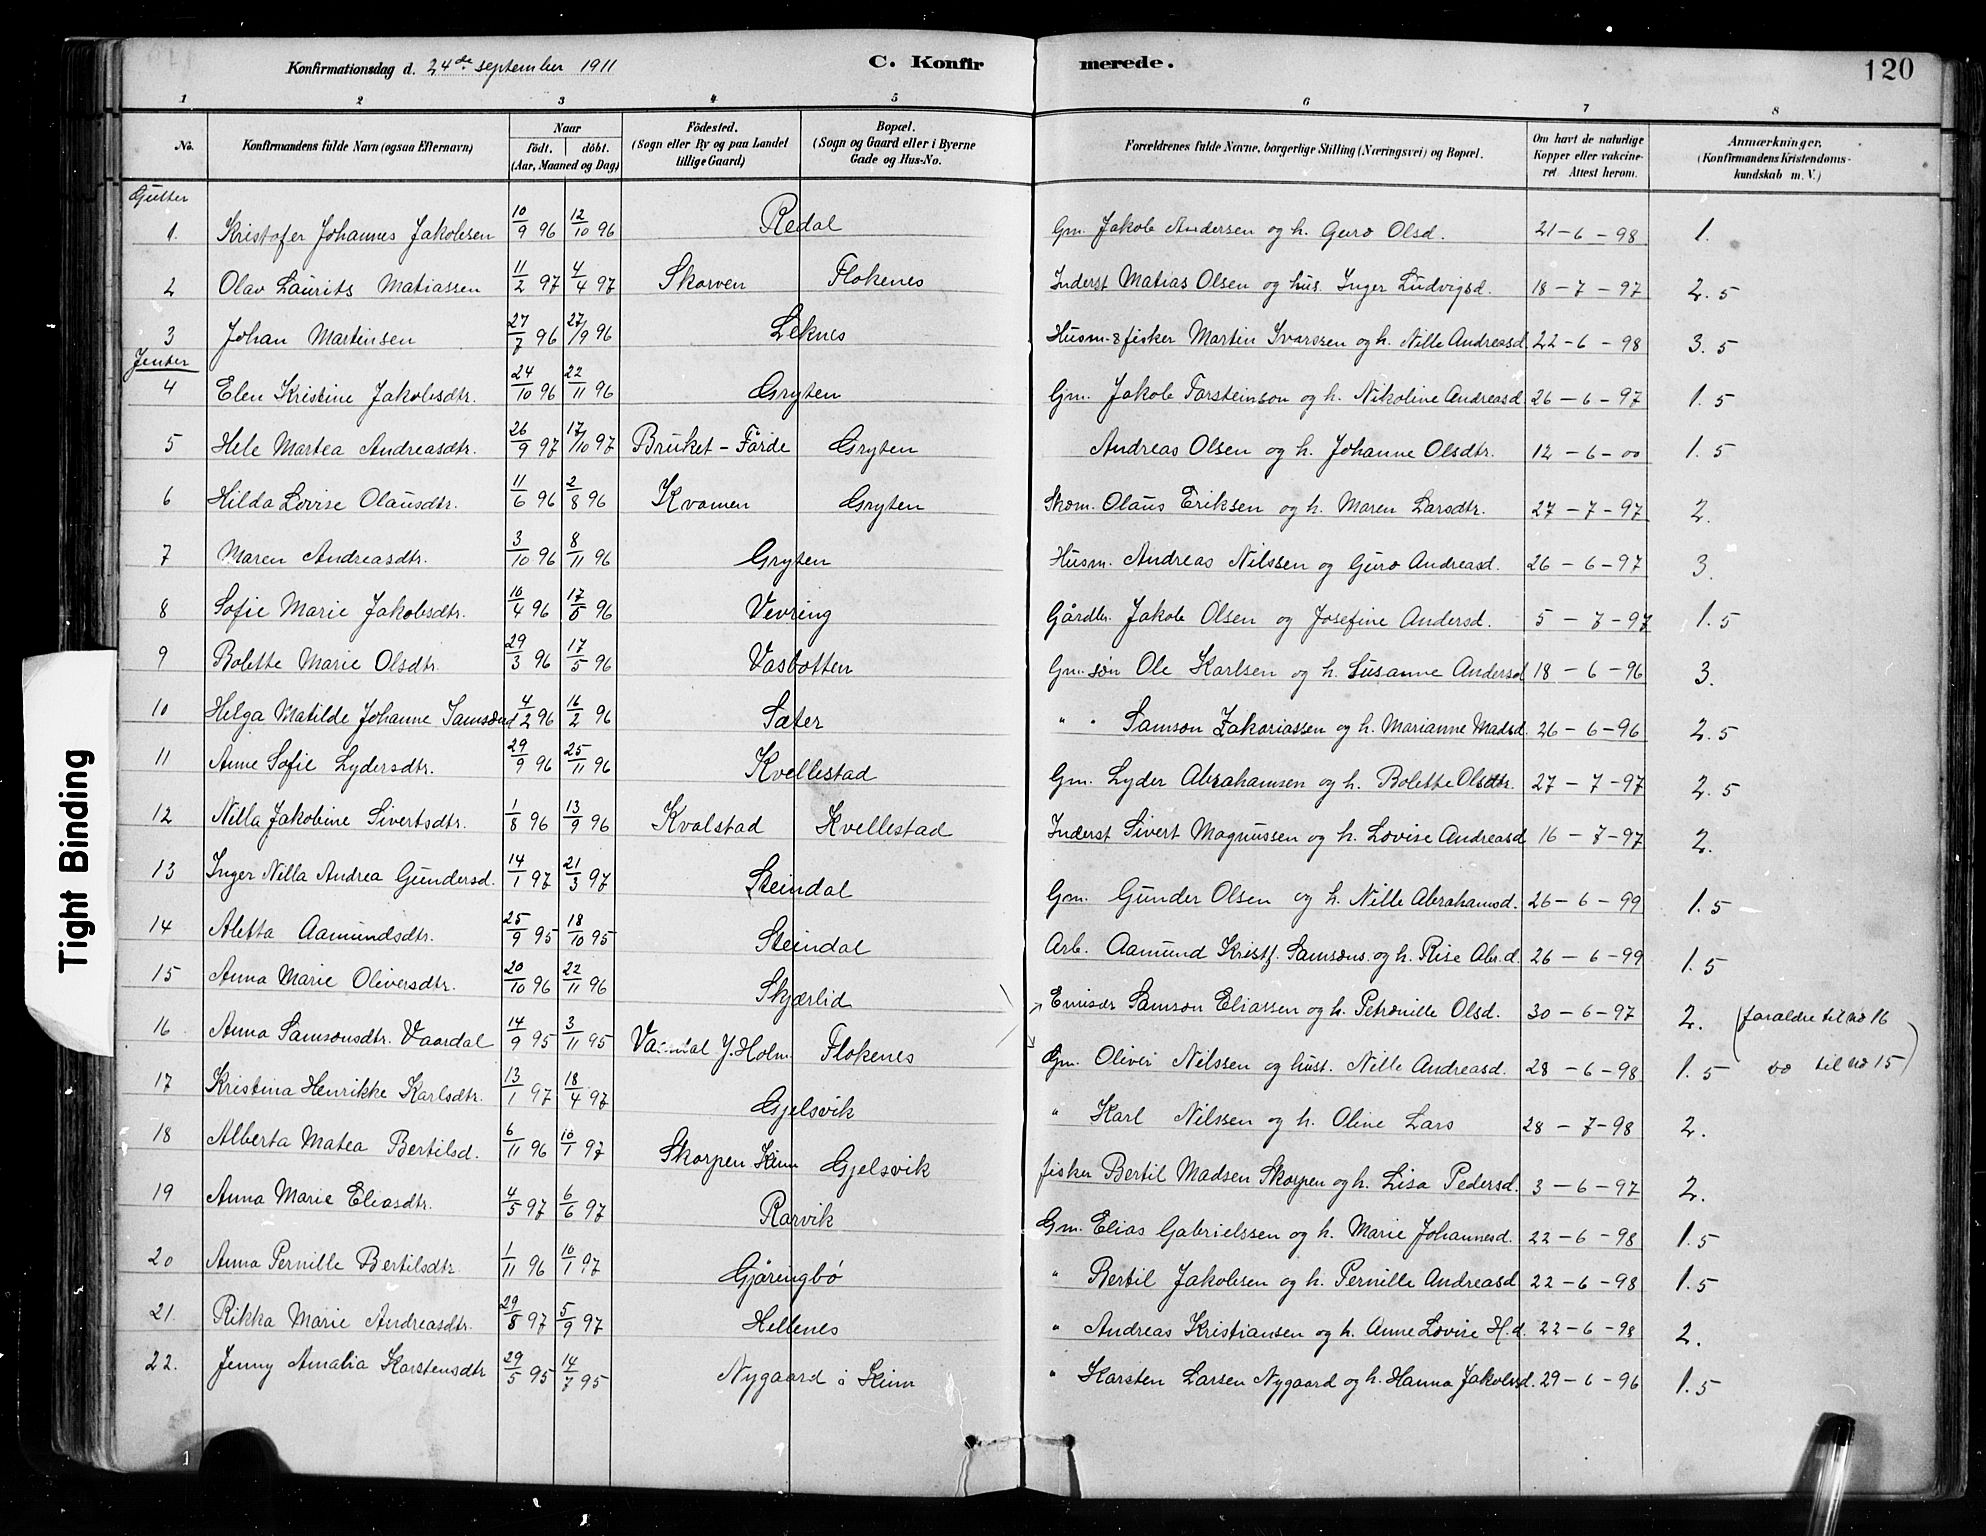 Konfirmationsdag d. 24de september 1911 C. Konfirmerede. 120
1 2 3 4 5 6 7 8
No. Konfirmandens fulde Navn (ogsaa Efternavn) Naar födt. döbt. (Aar, Maaned og Dag) Födested. (Sogn eller By og paa Landet tillige Gaard) Bopæl. (Sogn og Gaard eller i Byerne Gade og Hus-No. Forældrenes fulde Navne, borgerlige Stilling (Næringsvei) og Bopæl. Om havt de naturlige Kopper eller vakcineret Attest herom. Anmærkninger. (Konfirmandens Kristendomskundskab m. V.)
Gutter
1. Kristofer Johannes Jakobsen 10/9 96 12/10 96 Redal Gm. Jakob Andersen og h. Guro Olsd. 21-6-98 1.
2 Olav Laurits Matiassen 11/2 97 4/4 97 Skorven Flokenes Inderst Matias Olsen og hus. Inger Ludvigsd. 18-7-97 2.5
3 Johan Martinsen 27/7 96 27/9 96 Leknes Husm. & fisker Martin Ivarssen og h. Nille Andreasd 22-6-98 3.5
Jenter
4 Elen Kristine Jakobsdtr. 24/10 96 22/11 96 Gryten Gm. Jakob Torsteinson og h. Nikoline Andreasd 26-6-97 1.5
5 Hele Martea Andreasdtr. 26/9 97 17/10 97 Bruket-Förde Gryten Andreas Olsen og h. Johanne Olsdtr. 12-6-00 1.5
6 Hilda Lovise Olausdtr. 11/6 96 2/8 96 Kvamen Gryten Skom. Olaus Eriksen og h. Maren Larsdtr. 27-7-97 2.
7 Maren Andreasdtr. 3/10 96 8/11 96 Gryten Husm. Andreas Nilssen og Guro Andreasd. 26-6-97 3.
8 Sofie Marie Jakobsdtr. 10/4 96 17/5 96 Vevring Gårdbr. Jakob Olsen og Josefine Andersd. 5-7-97 1.5
9 Bolette Marie Olsdtr. 29/3 96 17/5 96 Vasbotten Gm. søn Ole Karlsen og h. Susanne Andersd 18-6-96 3.
10 Helga Matilde Johanne Samsond 4/2 96 16/2 96 Sæter " " Samson Zakariassen og h. Marianne Madsd. 26-6-96 2.5
11 Anne Sofie Lydersdtr. 29/9 96 25/11 96 Kvellestad Gm. Lyder Abrahamsen og h. Bolette Olsdtr. 27-7-97 2.5
12 Nilla Jakobine Sivertsdtr. 1/8 96 13/9 96 Kvalstad Kvellestad Inderst Sivert Magnussen og h. Lovise Andreasd 16-7-97 2.
13 Inger Nilla Andrea Gundersd. 14/1 97 21/3 97 Steindal Gm. Gunder Olsen og h. Nille Abrahamsd. 26-6-99 1.5
14 Aletta Aamundsdtr. 25/9 95 18/10 95 Steindal Arb. Aamund Kristf. Samsons. og h. Rise Abr.d. 26-6-99 1.5
15 Anna Marie Oliversdtr. 20/10 96 22/11 96 Skjærlid Emisær Samson Eliassen og h. Petronille Olsd. 30-6-97 2. (foraldre til no 16
16 Anna Samsonsdtr. Vaardal 14/9 95 3/11 95 J. Holm. Flokenes Gm. Oliver Nilssen og hust. Nille Andreasd. 28-6-98 1.5 do til no 15)
17 Kristina Henrikke Karlsdtr. 13/1 97 18/4 97 Gjelsvik " Karl Nilssen og h. Oline Lars 28-7-98 2.
18 Alberta Matea Bertilsd. 6/11 96 10/1 97 Skorpen Kinn Gjelsvik fisker Bertil Madsen Skorpen og h. Lisa Pedersd. 3-6-97 2.
19 Anna Marie Eliasdtr. 4/5 97 6/6 97 Rørvik Gm. Elias Gabrielssen og h. Marie Johannesd. 22-6-98 1.5
20 Anna Pernille Bertilsdtr 1/11 96 10/1 97 Gjøringbø " Bertil Jakobsen og h. Pernille Andreasd 22-6-98 1.5
21. Rikka Marie Andreasdtr. 29/8 97 5/9 97 Hellenes " Andreas Kristiansen og h. Anne Lovise H.d. 22-6-98 2.
22. Jenny Amalia Karstensdtr 29/5 95 14/7 95 Nygaard i Kinn " Karsten Larsen Nygaard og h. Hanna Jakobsd. 29-6-96 1.5
Tight Binding